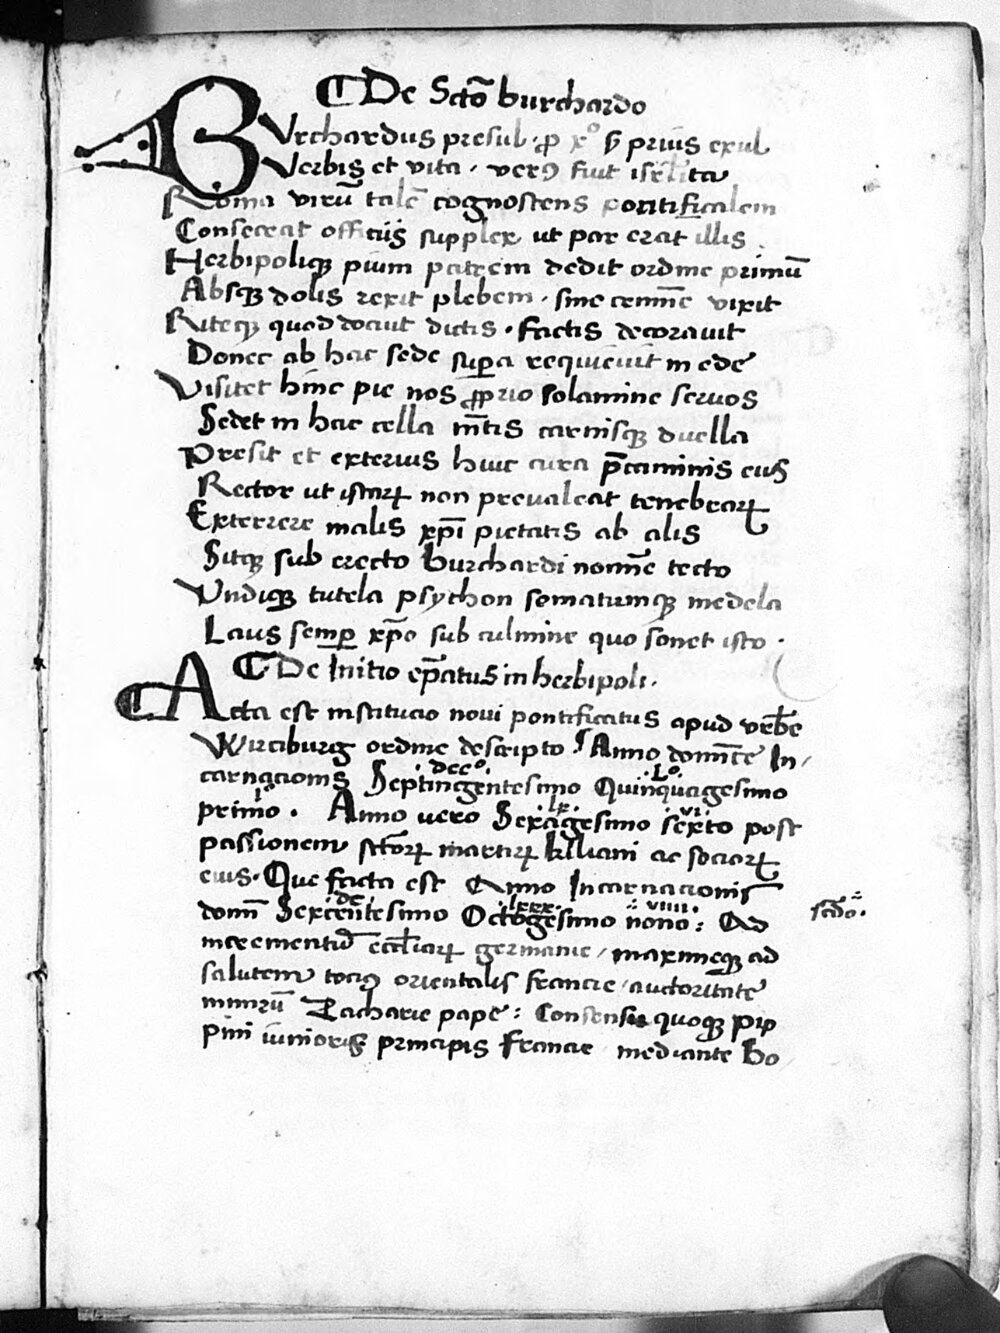 De Scto burchardo
BVrchardus presul · ꝓ xº prius exul
Verbis et vita · verꝰ fuit isrl'ita
Roma virū talē cognoscens pontificalem
Consecrat officijs supplex ut par erat illis .
Herbipoliqꝫ pium patrem dedit ordine primū
Absqꝫ dolis rexit plebem · sine crimīe vixit
Riteqꝫ quod docuit dictis · factis decorauit
Donec ab hac sede suꝑa requieuit in ede
Visitet hinc pie nos ꝓprio solamine seruos
Sedet in hac cella mētis carnisqꝫ duella
Presit et exterius huic cura p̄caminis eius
Rector ut istaꝝ non preualeat tenebraꝝ
Exterrere malis xp̄i pietatis ab alis
Sitqꝫ sub erecto burchardi nomīe tecto
Vndiqꝫ tutela psychon somatumqꝫ medela
Laus semꝑ xp̄o sub culmine quo sonet isto ·
De Initio ep̄atus in herbipoli .
Acta est institucio noui pontificatus apud vrbē
Wirciburg ordine descripto Anno domīce In/
·dccº· ·Lº·
carnacionis Septingentesimo Quinquagesimo
iº ·lx· ·vi·
primo . Anno vero Sexagesimo sexto post
passionem sctoꝝ martiꝝ kiliani ac socioꝝ
eius · Que facta est Anno Incarnacionis
·dc· ·lxxx· ·viiii·
domī Sexcentesimo Octogesimo nono : Ad scdo.
incrementū eccliaꝝ germanie / maximeqꝫ ad
salutem tociꝰ orientalis francie / auctoritate
mirū Zacharie pape : Consensu quoqꝫ Pip
pini iunioris principis francie mediante Bo